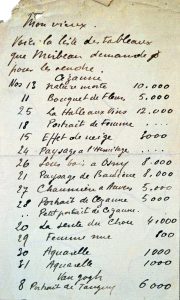 Mon vieux.
Voici la liste des tableaux
que Mirbeau demande
pour les vendre.
Cezanne
Nos 13 nature morte 10.000
11 Bouquet de fleurs 5.000
25 La Halle aux Vins 12.000
18 Portrait de Femme
15 Effet de neige 3000
24 Paysage à l'Hermitage
26 Sous bois à 8.000
21 Paysage de 8.000
27 Chaumière à Auvers 5.000
28 Portrait de Cezanne 5000
" Petit portrait de Cezanne.
20 La sente du Chou 4.000
29 Femme nue 800
30 Aquarelle 1000
31 Aquarelle 1000
Van Gogh
8 Portrait de Tanguy 6000